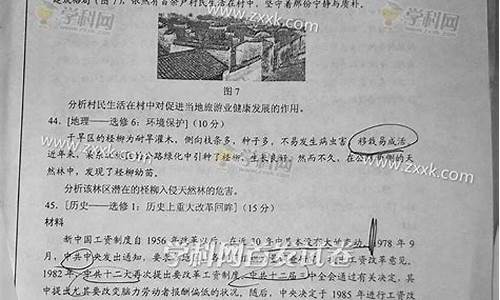 建成格局（图7），依然有百余户村民生活在村中，坚守着那份宁静与质朴。
图7
分析村民生活在村中对促进当地旅游业健康发展的作用。
44. [地理——选修6：环境保护]（10分）
干旱区的柽柳为耐旱灌木，侧向枝条多，种子多，不易发生病虫害，移栽易成活。
近年来，某 公路绿化中引种了柽柳，生长良好。然而不久，在公路 侧的天
然林中，发现了柽柳幼苗。
分析该林区潜在的柽柳入侵天然林的危害。
45. [历史——选修1：历史上重大改革回眸]（15分）
材料
新中国工资制度自1956年改革以后，在近30年中基本没有大的变动。1978年9
月，中共中央发出通知，要 工资改革意见。
1982年，中共十二大再次提出要改革工资制度。中共十二届三中全会通过有关决定，其
中提出尤其要改变脑力劳动者报酬偏低的状况。随后，中央决定于1985年进行工资改
学科网 www.zxxk.com
学科网
www.zxxk.com
www.zxxk.com
学科网
www.zxxk.com
学科网首发试卷